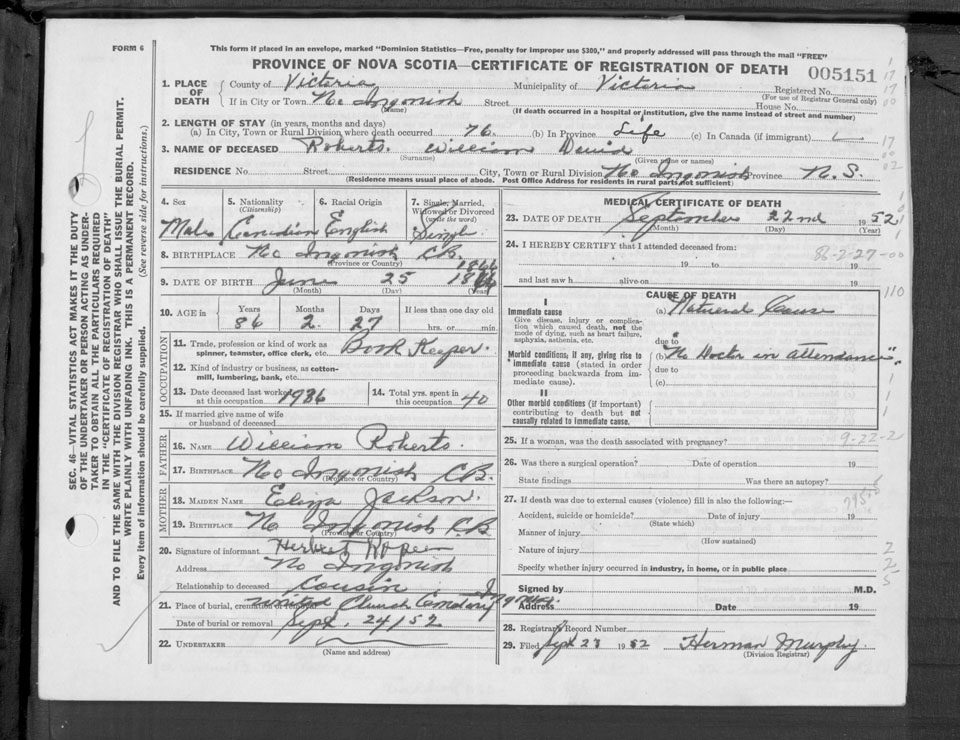 FORM 6
This form if placed in an envelope, marked "Dominion Statistics—Free, penalty for improper use $300," and properly addressed will pass through the mail "FREE"
PROVINCE OF NOVA SCOTIA—CERTIFICATE OF REGISTRATION OF DEATH
005151
1. PLACE OF DEATH
County of Victoria Municipality of Victoria Registered No.
(For use of Registrar General only)
If in City or Town No Ingonish Street House No.
(Name) (If death occurred in a hospital or institution, give the name instead of street and number)
2. LENGTH OF STAY (in years, months and days)
(a) In City, Town or Rural Division where death occurred 76. (b) In Province Life (c) In Canada (if immigrant)
3. NAME OF DECEASED Roberts. William David
(Surname) (Given name or names)
RESIDENCE No. Street City, Town or Rural Division No Ingonish Province N.S.
(Residence means usual place of abode. Post Office Address for residents in rural parts not sufficient)
4. Sex 5. Nationality (Citizenship) 6. Racial Origin 7. Single, Married, Widowed or Divorced (write the word)
Male Canadian English Single
8. BIRTHPLACE No Ingonish C.B.
(Province or Country)
1866
9. DATE OF BIRTH June 25
(Month) (Day) (Year)
10. AGE in Years Months Days If less than one day old
86 2 27 hrs. or min.
OCCUPATION
11. Trade, profession or kind of work as spinner, teamster, office clerk, etc. Book Keeper.
12. Kind of industry or business, as cotton-mill, lumbering, bank, etc.
13. Date deceased last worked at this occupation 1936 14. Total yrs. spent in this occupation 40
15. If married give name of wife or husband of deceased
FATHER
16. NAME William Roberts.
17. BIRTHPLACE No Ingonish C.B.
(Province or Country)
MOTHER
18. MAIDEN NAME Eliza Jackson.
19. BIRTHPLACE No Ingonish C.B
(Province or Country)
20. Signature of informant Herbert
Address No Ingonish
Relationship to deceased Cousin
21. Place of burial, cremation or removal United Church Cemetery Ingonish
Date of burial or removal Sept. 24/52
22. UNDERTAKER
(Name and address)
MEDICAL CERTIFICATE OF DEATH
23. DATE OF DEATH September 22nd 1952
(Month) (Day) (Year)
24. I HEREBY CERTIFY that I attended deceased from:
19 to 19
and last saw h alive on 19
CAUSE OF DEATH
I
Immediate cause
Give disease, injury or complication which caused death, not the mode of dying, such as heart failure, asphyxia, asthenia, etc.
(a) Natural Cause
due to
Morbid conditions, if any, giving rise to immediate cause (stated in order proceeding backwards from immediate cause).
(b) "No Doctor in attendance".
due to
(c)
II
Other morbid conditions (if important) contributing to death but not causally related to immediate cause.
25. If a woman, was the death associated with pregnancy?
26. Was there a surgical operation? Date of operation 19
State findings Was there an autopsy?
27. If death was due to external causes (violence) fill in also the following:—
Accident, suicide or homicide? Date of injury 19
(State which)
Manner of injury
(How sustained)
Nature of injury
Specify whether injury occurred in industry, in home, or in public place
Signed by M.D.
Address Date 19
28. Registrar's Record Number
29. Filed Sept 23 1952 Herman Murphy.
(Division Registrar)
SEC. 46—VITAL STATISTICS ACT MAKES IT THE DUTY
OF THE UNDERTAKER OR PERSON ACTING AS UNDER-
TAKER TO OBTAIN ALL THE PARTICULARS REQUIRED
IN THE "CERTIFICATE OF REGISTRATION OF DEATH"
AND TO FILE THE SAME WITH THE DIVISION REGISTRAR WHO SHALL ISSUE THE BURIAL PERMIT.
WRITE PLAINLY WITH UNFADING INK. THIS IS A PERMANENT RECORD.
Every item of information should be carefully supplied. (See reverse side for instructions.)